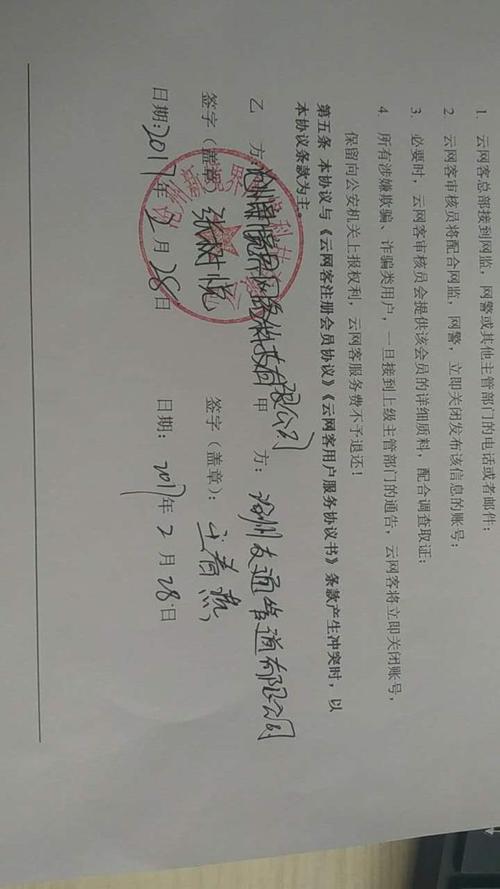 1. 云网客总部接到网监，网警或其他主管部门的电话或者邮件；
2. 云网客审核员将配合网监，网警，立即关闭发布该信息的账号；
3. 必要时，云网客审核员会提供该会员的详细质料，配合调查取证；
4. 所有涉嫌欺骗、诈骗类用户，一旦接到上级主管部门的通告，云网客将立即关闭账号，
保留向公安机关上报权利，云网客服务费不予退还！
第五条 本协议与《云网客注册会员协议》《云网客用户服务协议书》条款产生冲突时，以
本协议条款为主。
乙 方：沧州 网络科技有限公司 甲 方：沧州友通管道有限公司
签字（盖章）：张树悦 签字（盖章）：王春
日期：2017年2月28日 日期：2017年2月28日